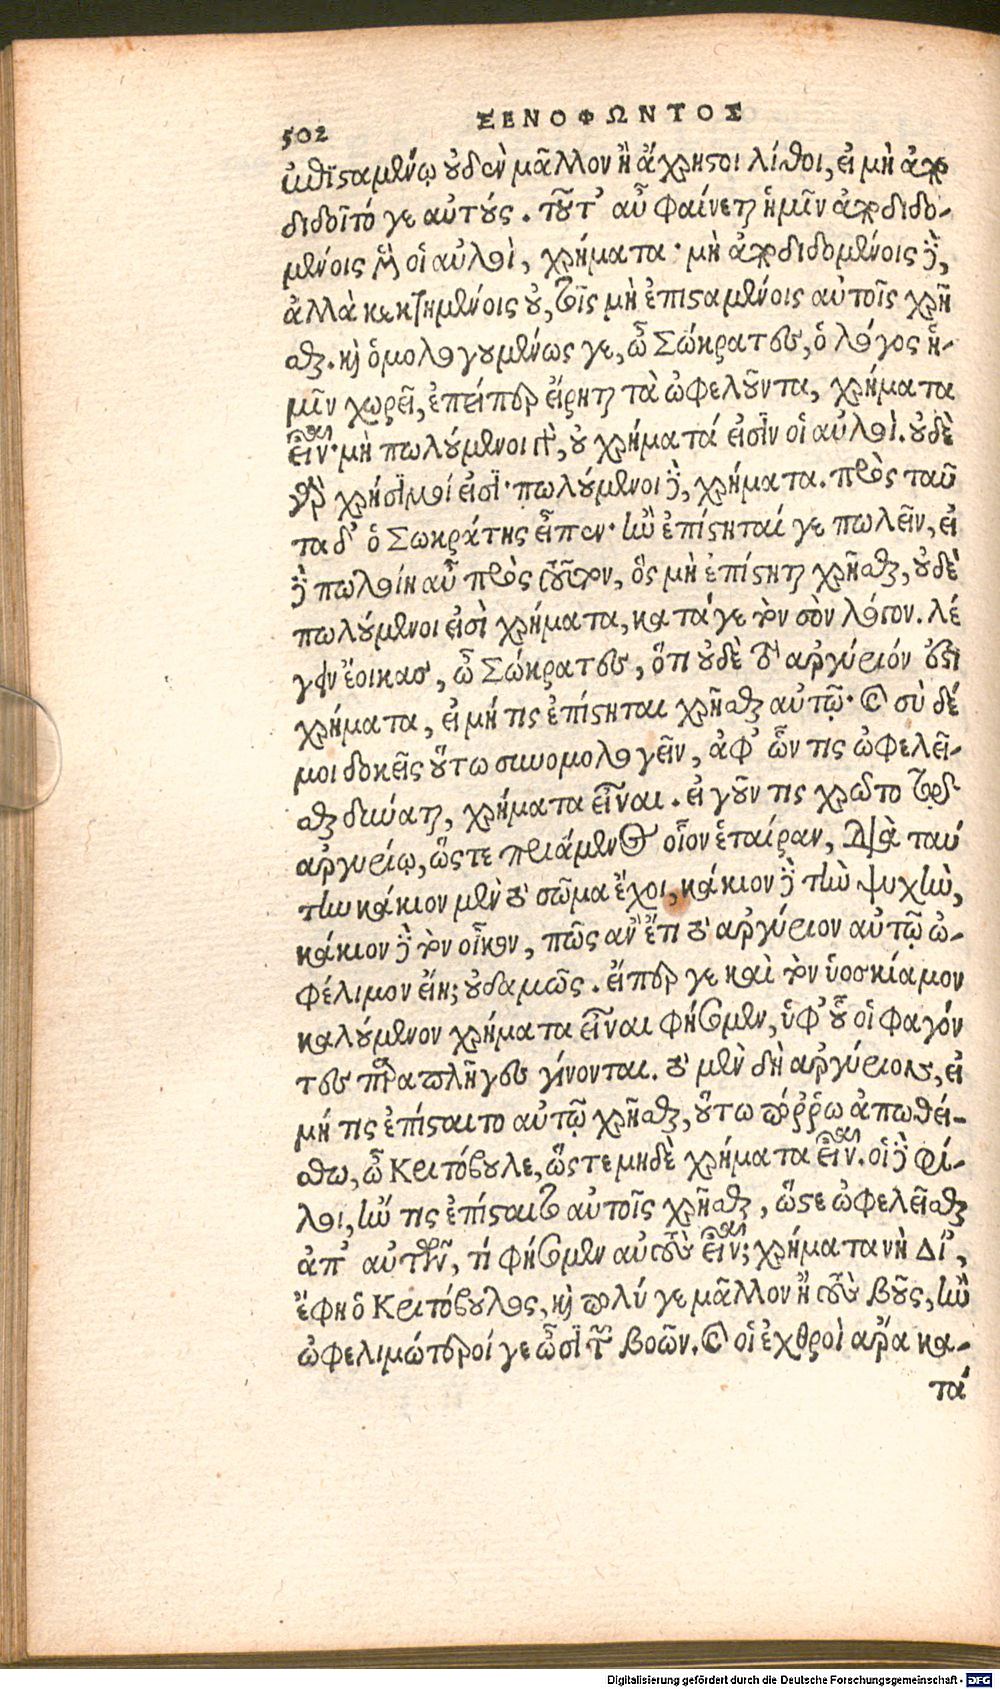 502 ΞΕΝΟΦΩΝΤΟΣ
ἐπισταμένῳ οὐδὲν μᾶλλον ἢ ἄχρηστοι λίθοι, εἰ μὴ ἀπο
διδοῖτό γε αὐτούς. τοῦτ' αὖ φαίνεται ἡμῖν ἀποδιδο-
μένοις μὲν οἱ αὐλοὶ, χρήματα· μὴ ἀποδιδομένοις δὲ,
ἀλλὰ κεκτημένοις οὔ, τοῖς μὴ ἐπισταμένοις αὐτοῖς χρῆ
σθαι. καὶ ὁμολογουμένως γε, ὦ Σώκρατες, ὁ λόγος ἡ-
μῖν χωρεῖ, ἐπείπερ εἴρηται τὰ ὠφελοῦντα, χρήματα
εἶναι· μὴ πωλούμενοι μὲν γὰρ, οὐ χρήματά εἰσιν οἱ αὐλοί. οὐδὲν
γὰρ χρήσιμοί εἰσι· πωλούμενοι δὲ, χρήματα. πρὸς ταῦ
τα δ' ὁ Σωκράτης εἶπεν· ἢν ἐπίστηταί γε πωλεῖν, εἰ
δὲ πωλοίη αὖ πρὸς τοῦτον, ὃς μὴ ἐπίστηται χρῆσθαι, οὐδὲ
πωλούμενοι εἰσὶ χρήματα, κατά γε τὸν σὸν λόγον. λέ
γειν ἔοικας, ὦ Σώκρατες, ὅτι οὐδὲ τὸ ἀργύριόν ἐστι
χρήματα, εἰ μή τις ἐπίσταται χρῆσθαι αὐτῷ· καὶ σὺ δέ
μοι δοκεῖς οὕτω συνομολογεῖν, ἀφ' ὧν τις ὠφελεῖ-
σθαι δύναται, χρήματα εἶναι. εἰ γοῦν τις χρῷτο τῷ
ἀργυρίῳ, ὥστε πριάμενος οἷον ἑταίραν, διὰ ταύ
την κάκιον μὲν τὸ σῶμα ἔχοι, κάκιον δὲ τὴν ψυχὴν,
κάκιον δὲ τὸν οἶκον, πῶς ἂν ἔτι τὸ ἀργύριον αὐτῷ ὠ-
φέλιμον εἴη; οὐδαμῶς. εἴπερ γε καὶ τὸν ὑοσκίαμον
καλούμενον χρήματα εἶναι φήσομεν, ὑφ' οὗ οἱ φαγόν
τες παραπλῆγες γίνονται. τὸ μὲν δὴ ἀργύριον, εἰ
μή τις ἐπίσταιτο αὐτῷ χρῆσθαι, οὕτω πόῤῥω ἀπωθεί-
σθω, ὦ Κριτόβουλε, ὥστε μηδὲ χρήματα εἶναι. οἱ δὲ φί-
λοι, ἤν τις ἐπίσταιτο αὐτοῖς χρῆσθαι, ὥστε ὠφελεῖσθαι
ἀπ' αὐτῶν, τί φήσομεν αὐτοὺς εἶναι; χρήματα νὴ Δί',
ἔφη ὁ Κριτόβουλος, καὶ πολύ γε μᾶλλον ἢ τοὺς βοῦς, ἢν
ὠφελιμώτεροί γε ὦσι τῶν βοῶν. καὶ οἱ ἐχθροὶ ἄρα κα-
τά
Digitalisierung gefördert durch die Deutsche Forschungsgemeinschaft - DFG